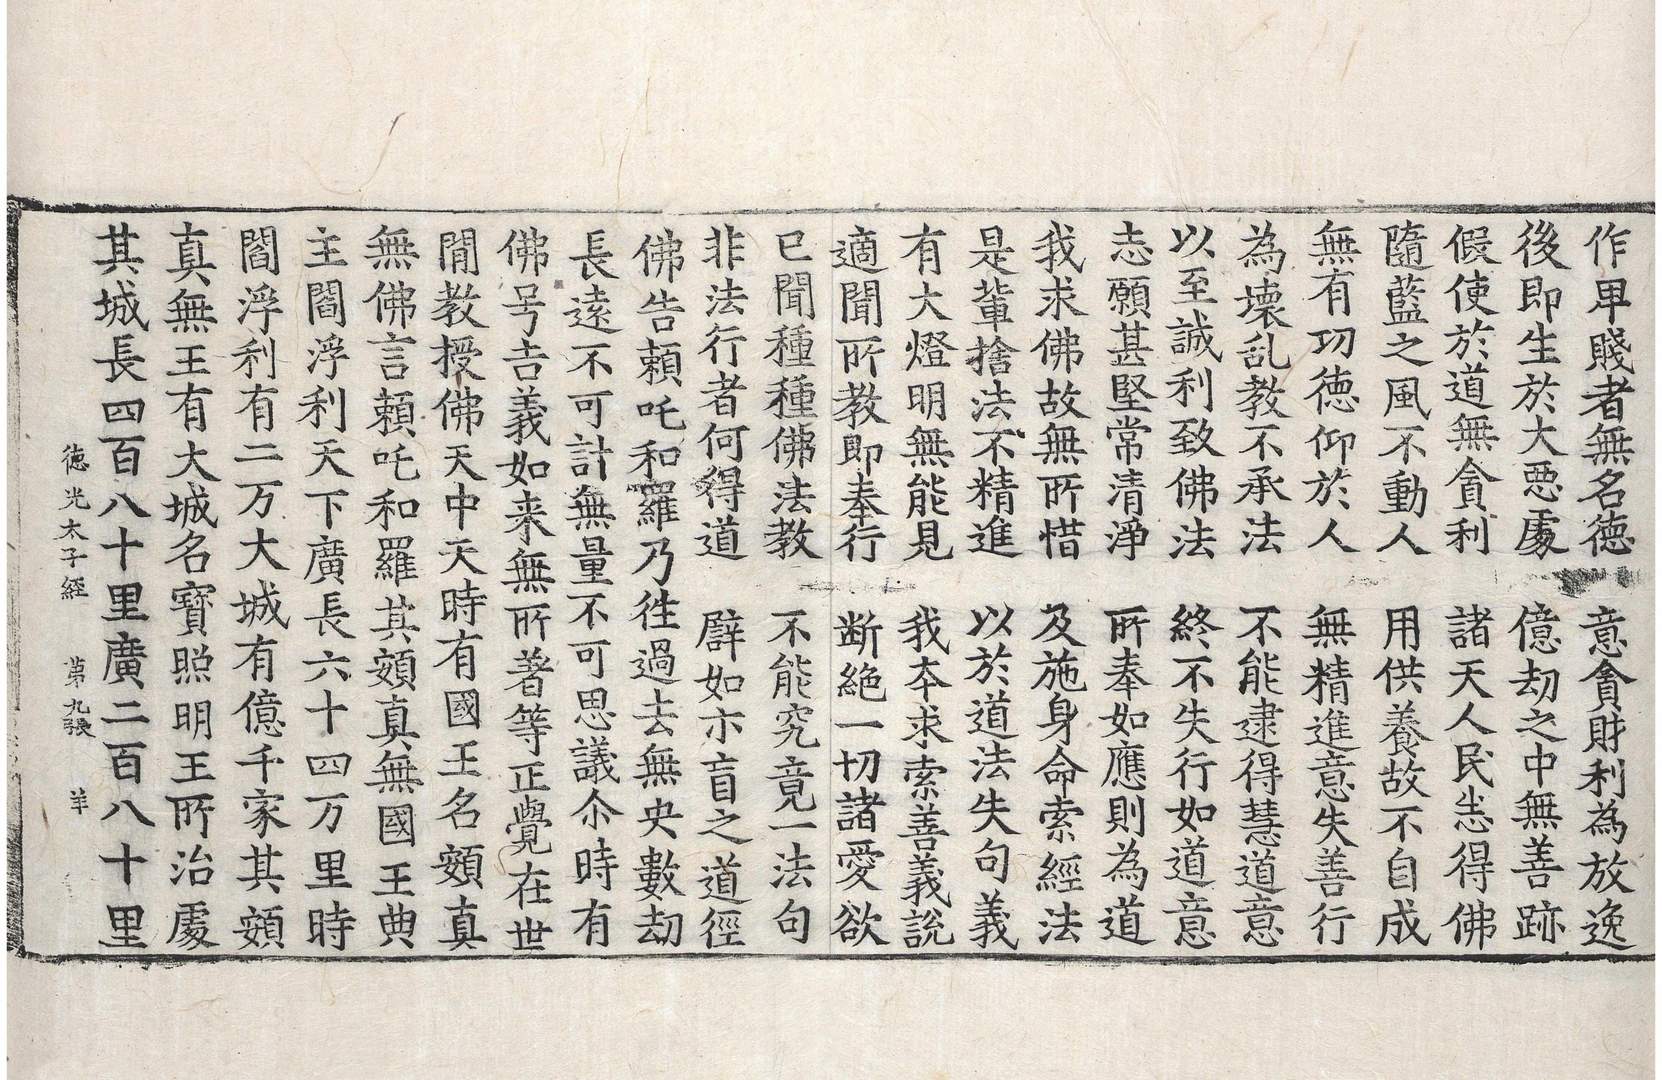 作卑賤者無名德　意貪財利為放逸
後即生於大惡處　億劫之中無善跡
假使於道無貪利　諸天人民悉得佛
隨藍之風不動人　用供養故不自成
無有功德仰於人　無精進意失善行
為壞乱教不承法　不能逮得慧道意
以至誠利致佛法　終不失行如道意
志願甚堅常清淨　所奉如應則為道
我求佛故無所惜　及施身命索經法
是輩捨法不精進　以於道法失句義
有大燈明無能見　我本求索善義說
適聞所教即奉行　断絕一切諸愛欲
已聞種種佛法教　不能究竟一法句
非法行者何得道　譬如示盲之道徑
佛告賴吒和羅乃往過去無央數劫
長遠不可計無量不可思議尒時有
佛号吉義如来無所著等正覺在世
閒教授佛天中天時有國王名頞真
無佛言賴吒和羅其頞真無國王典
主閻浮利天下廣長六十四万里時
閻浮利有二万大城有億千家其頞
真無王有大城名寶照明王所治處
其城長四百八十里廣二百八十里
德光太子經　第九張　羊